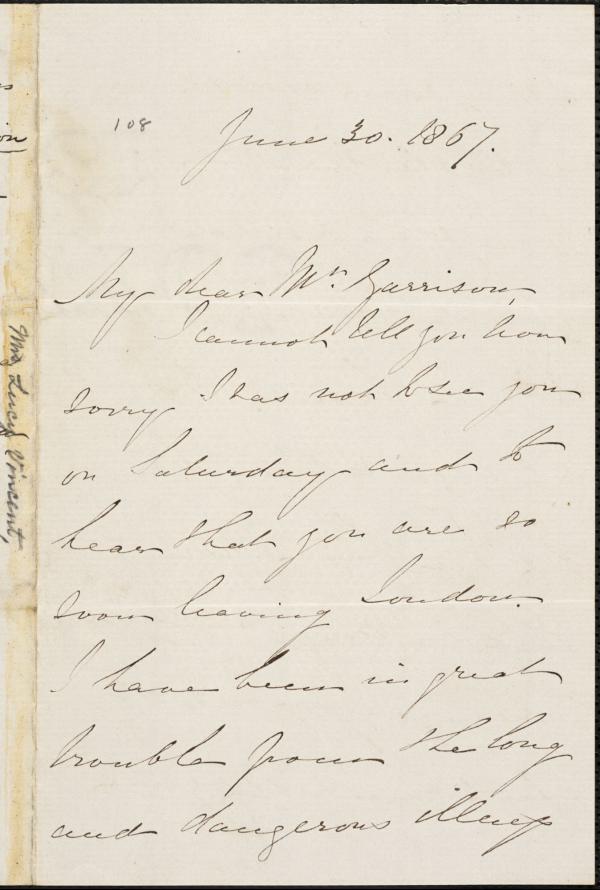 108
June 30. 1867.
My dear Mr. Garrison,
I cannot tell you how
sorry I was not to see you
on Saturday and to
hear that you are so
soon leaving London.
I have been in great
trouble from the long
and dangerous illness
Mrs. Lucy Vincent,